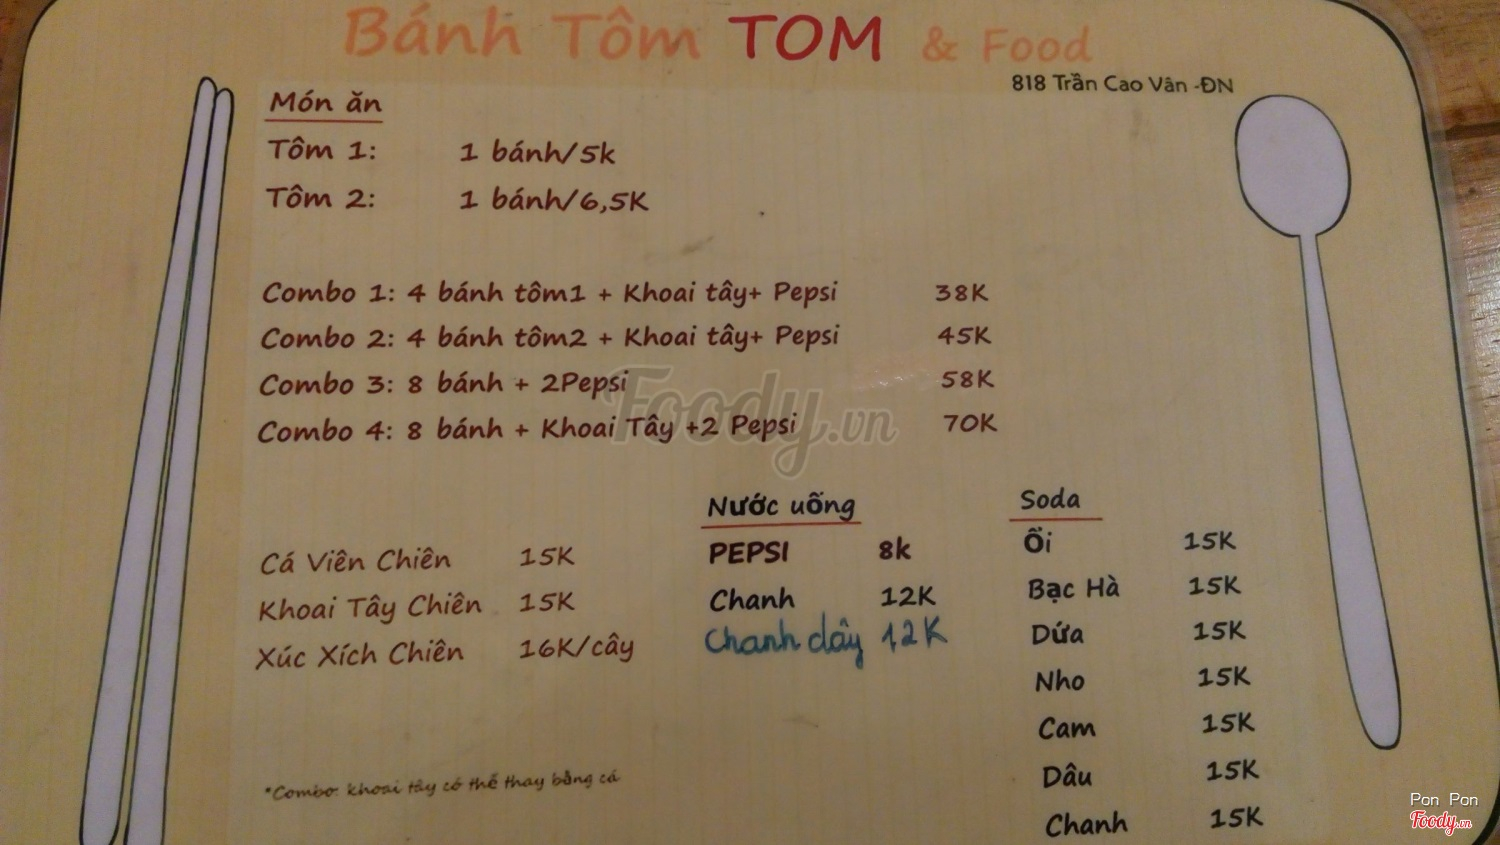 Bánh Tôm TOM & Food
818 Trần Cao Vân -ĐN
Món ăn
Tôm 1: 1 bánh/5k
Tôm 2: 1 bánh/6,5K
Combo 1: 4 bánh tôm1 + Khoai tây+ Pepsi 38K
Combo 2: 4 bánh tôm2 + Khoai tây+ Pepsi 45K
Combo 3: 8 bánh + 2Pepsi 58K
Combo 4: 8 bánh + Khoai Tây +2 Pepsi 70K
Foody.vn
Cá Viên Chiên 15K
Khoai Tây Chiên 15K
Xúc Xích Chiên 16K/cây
*Combo: khoai tây có thể thay bằng cá
Nước uống
PEPSI 8k
Chanh 12K
Chanh dây 12K
Soda
Ổi 15K
Bạc Hà 15K
Dứa 15K
Nho 15K
Cam 15K
Dâu 15K
Chanh 15K
Pon Pon
Foody.vn